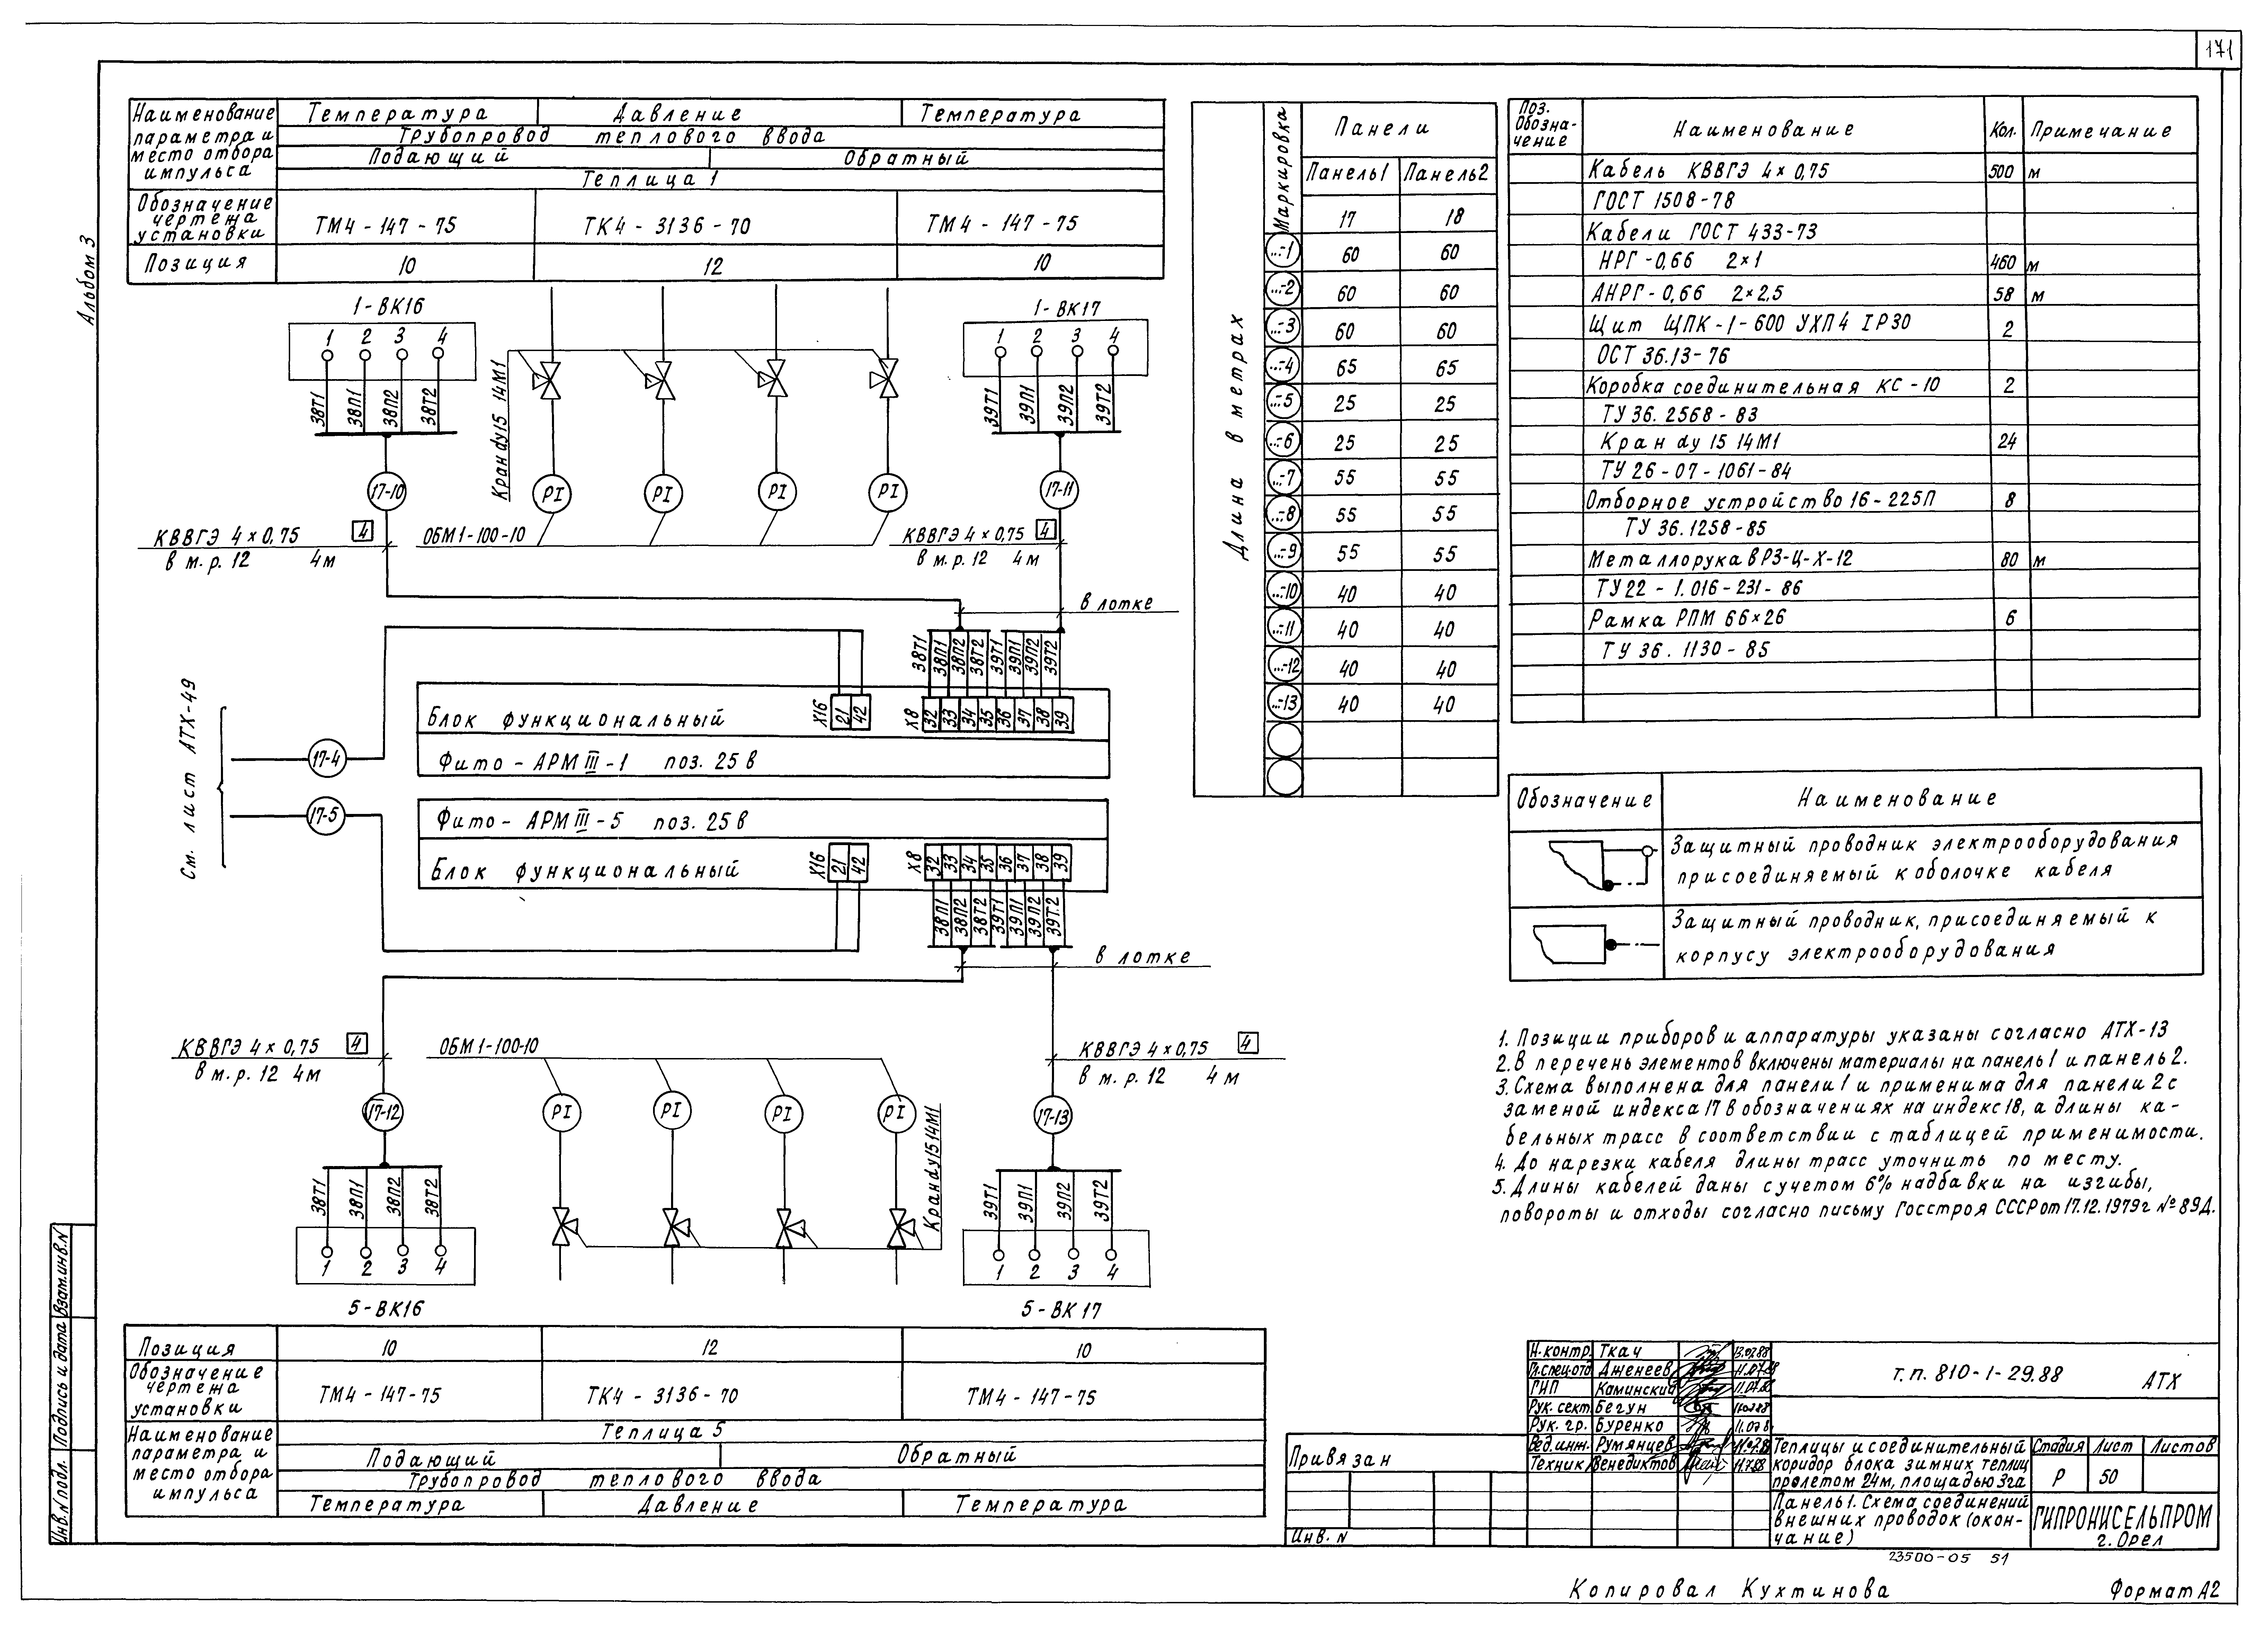 171
Альбом 3
Наименование параметра и место отбора импульса
Температура Давление Температура
Трубопровод теплового ввода
Подающий Обратный
Теплица 1
Обозначение чертежа установки
ТМ4-147-75 ТК4-3136-70 ТМ4-147-75
Позиция 10 12 10
1-ВК16
1 2 3 4
38Т1 38П1 38П2 38Т2
17-10
КВВГЭ 4×0,75 4
в м.р. 12 4м
Кран dу15 14М1
PI PI PI PI
ОБМ1-100-10
1-ВК17
1 2 3 4
39Т1 39П1 39П2 39Т2
17-11
КВВГЭ 4×0,75 4
в м.р. 12 4м
в лотке
38Т1 38П1 38П2 38Т2 39Т1 39П1 39П2 39Т2
Блок функциональный
Х16 21 42
Х8 32 33 34 35 36 37 38 39
Фито-АРМ III-1 поз. 25в
См. лист АТХ-49
17-4
17-5
Фито-АРМ III-5 поз. 25в
Блок функциональный
Х16 21 42
Х8 32 33 34 35 36 37 38 39
38П1 38П2 38Т2 39Т1 39П1 39П2 39Т.2
в лотке
КВВГЭ 4×0,75 4
в м.р. 12 4м
17-12
38Т1 38П1 38П2 38Т2
1 2 3 4
5-ВК16
ОБМ1-100-10
PI PI PI PI
Кран dу15 14М1
КВВГЭ 4×0,75 4
в м.р. 12 4м
17-13
39Т1 39П1 39П2 39Т2
1 2 3 4
5-ВК17
Позиция 10 12 10
Обозначение чертежа установки
ТМ4-147-75 ТК4-3136-70 ТМ4-147-75
Наименование параметра и место отбора импульса
Теплица 5
Подающий Обратный
Трубопровод теплового ввода
Температура Давление Температура
Длина в метрах
Маркировка Панели
Панель1 Панель2
17 18
...-1 60 60
...-2 60 60
...-3 60 60
...-4 65 65
...-5 25 25
...-6 25 25
...-7 55 55
...-8 55 55
...-9 55 55
...-10 40 40
...-11 40 40
...-12 40 40
...-13 40 40
Поз. Обозна-чение Наименование Кол. Примечание
Кабель КВВГЭ 4×0,75 500 м
ГОСТ 1508-78
Кабели ГОСТ 433-73
НРГ-0,66 2×1 460 м
АНРГ-0,66 2×2,5 58 м
Щит ЩПК-1-600 УХЛ4 IP30 2
ОСТ 36.13-76
Коробка соединительная КС-10 2
ТУ 36.2568-83
Кран dу 15 14М1 24
ТУ 26-07-1061-84
Отборное устройство 16-225П 8
ТУ 36.1258-85
Металлорукав РЗ-Ц-Х-12 80 м
ТУ 22-1.016-231-86
Рамка РПМ 66×26 6
ТУ 36.1130-85
Обозначение Наименование
Защитный проводник электрооборудования
присоединяемый к оболочке кабеля
Защитный проводник, присоединяемый к
корпусу электрооборудования
1. Позиции приборов и аппаратуры указаны согласно АТХ-13
2. В перечень элементов включены материалы на панель1 и панель2.
3. Схема выполнена для панели1 и применима для панели2 с
заменой индекса 17 в обозначениях на индекс18, а длины ка-
бельных трасс в соответствии с таблицей применимости.
4. До нарезки кабеля длины трасс уточнить по месту.
5. Длины кабелей даны с учетом 6% надбавки на изгибы,
повороты и отходы согласно письму Госстроя СССР от 17.12.1979г №89Д.
Взам.инв.N
Подпись и дата
Инв.N подл.
Привязан
Инв. N
Н.контр. Ткач 13.07.88
Гл.спец.отд Дженеев
ГИП Каминский
Рук. сект. Бегун
Рук. гр. Буренко
Вед.инж. Румянцев
Техник Венедиктов
т.п. 810-1-29.88 АТХ
Теплицы и соединительный
коридор блока зимних теплиц
пролетом 24м, площадью 3га
Стадия Лист Листов
Р 50
Панель1. Схема соединений
внешних проводок (окон-
чание)
ГИПРОНИСЕЛЬПРОМ
г. Орел
23500-05 51
Копировал Кухтинова
Формат А2